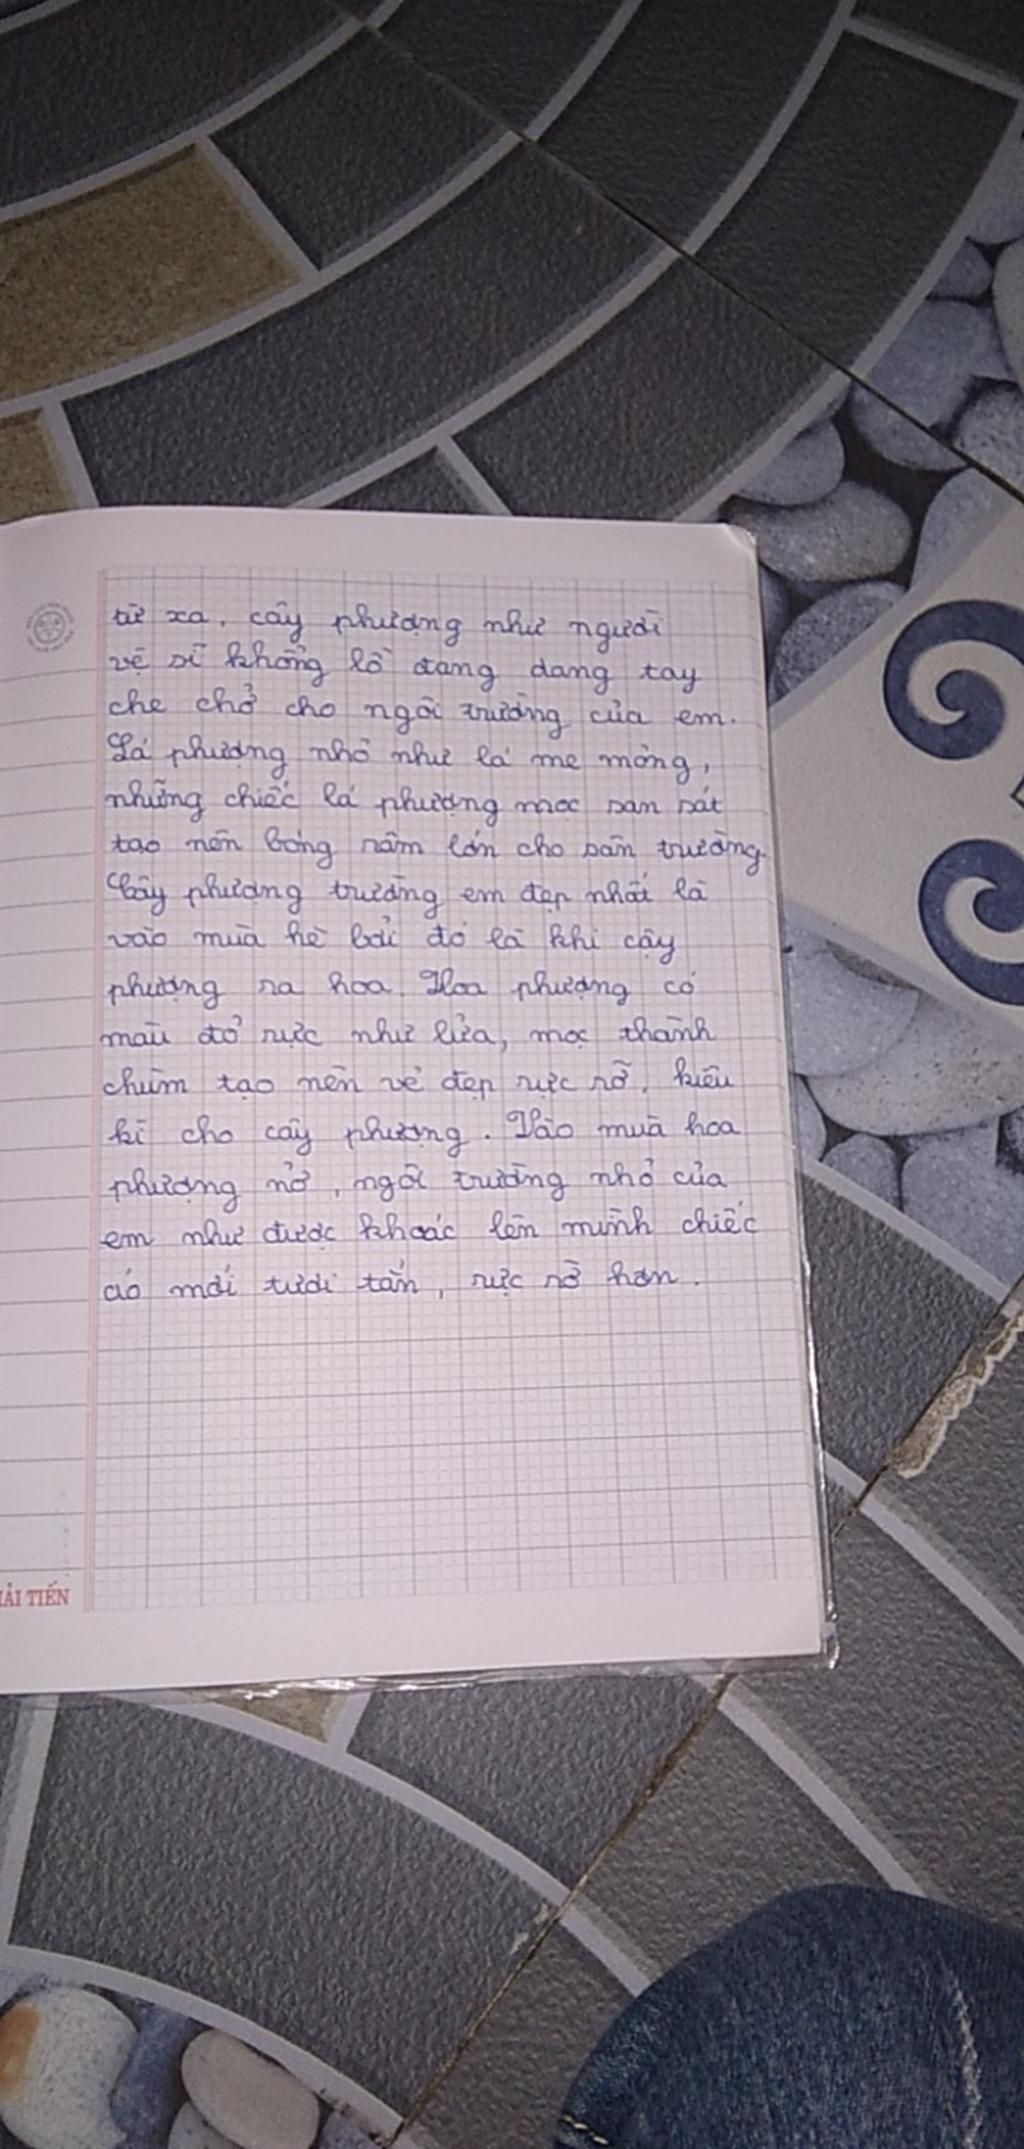 từ xa, cây phượng như người
vệ sĩ khổng lồ đang dang tay
che chở cho ngôi trường của em.
Lá phượng nhỏ như lá me mỏng,
những chiếc lá phượng mọc san sát
tạo nên bóng râm lớn cho sân trường.
Cây phượng trường em đẹp nhất là
vào mùa hè bởi đó là khi cây
phượng ra hoa. Hoa phượng có
màu đỏ rực như lửa, mọc thành
chùm tạo nên vẻ đẹp rực rỡ, kiêu
kì cho cây phượng. Vào mùa hoa
phượng nở, ngôi trường nhỏ của
em như được khoác lên mình chiếc
áo mới tươi tắn, rực rỡ hơn.
ẢI TIẾN